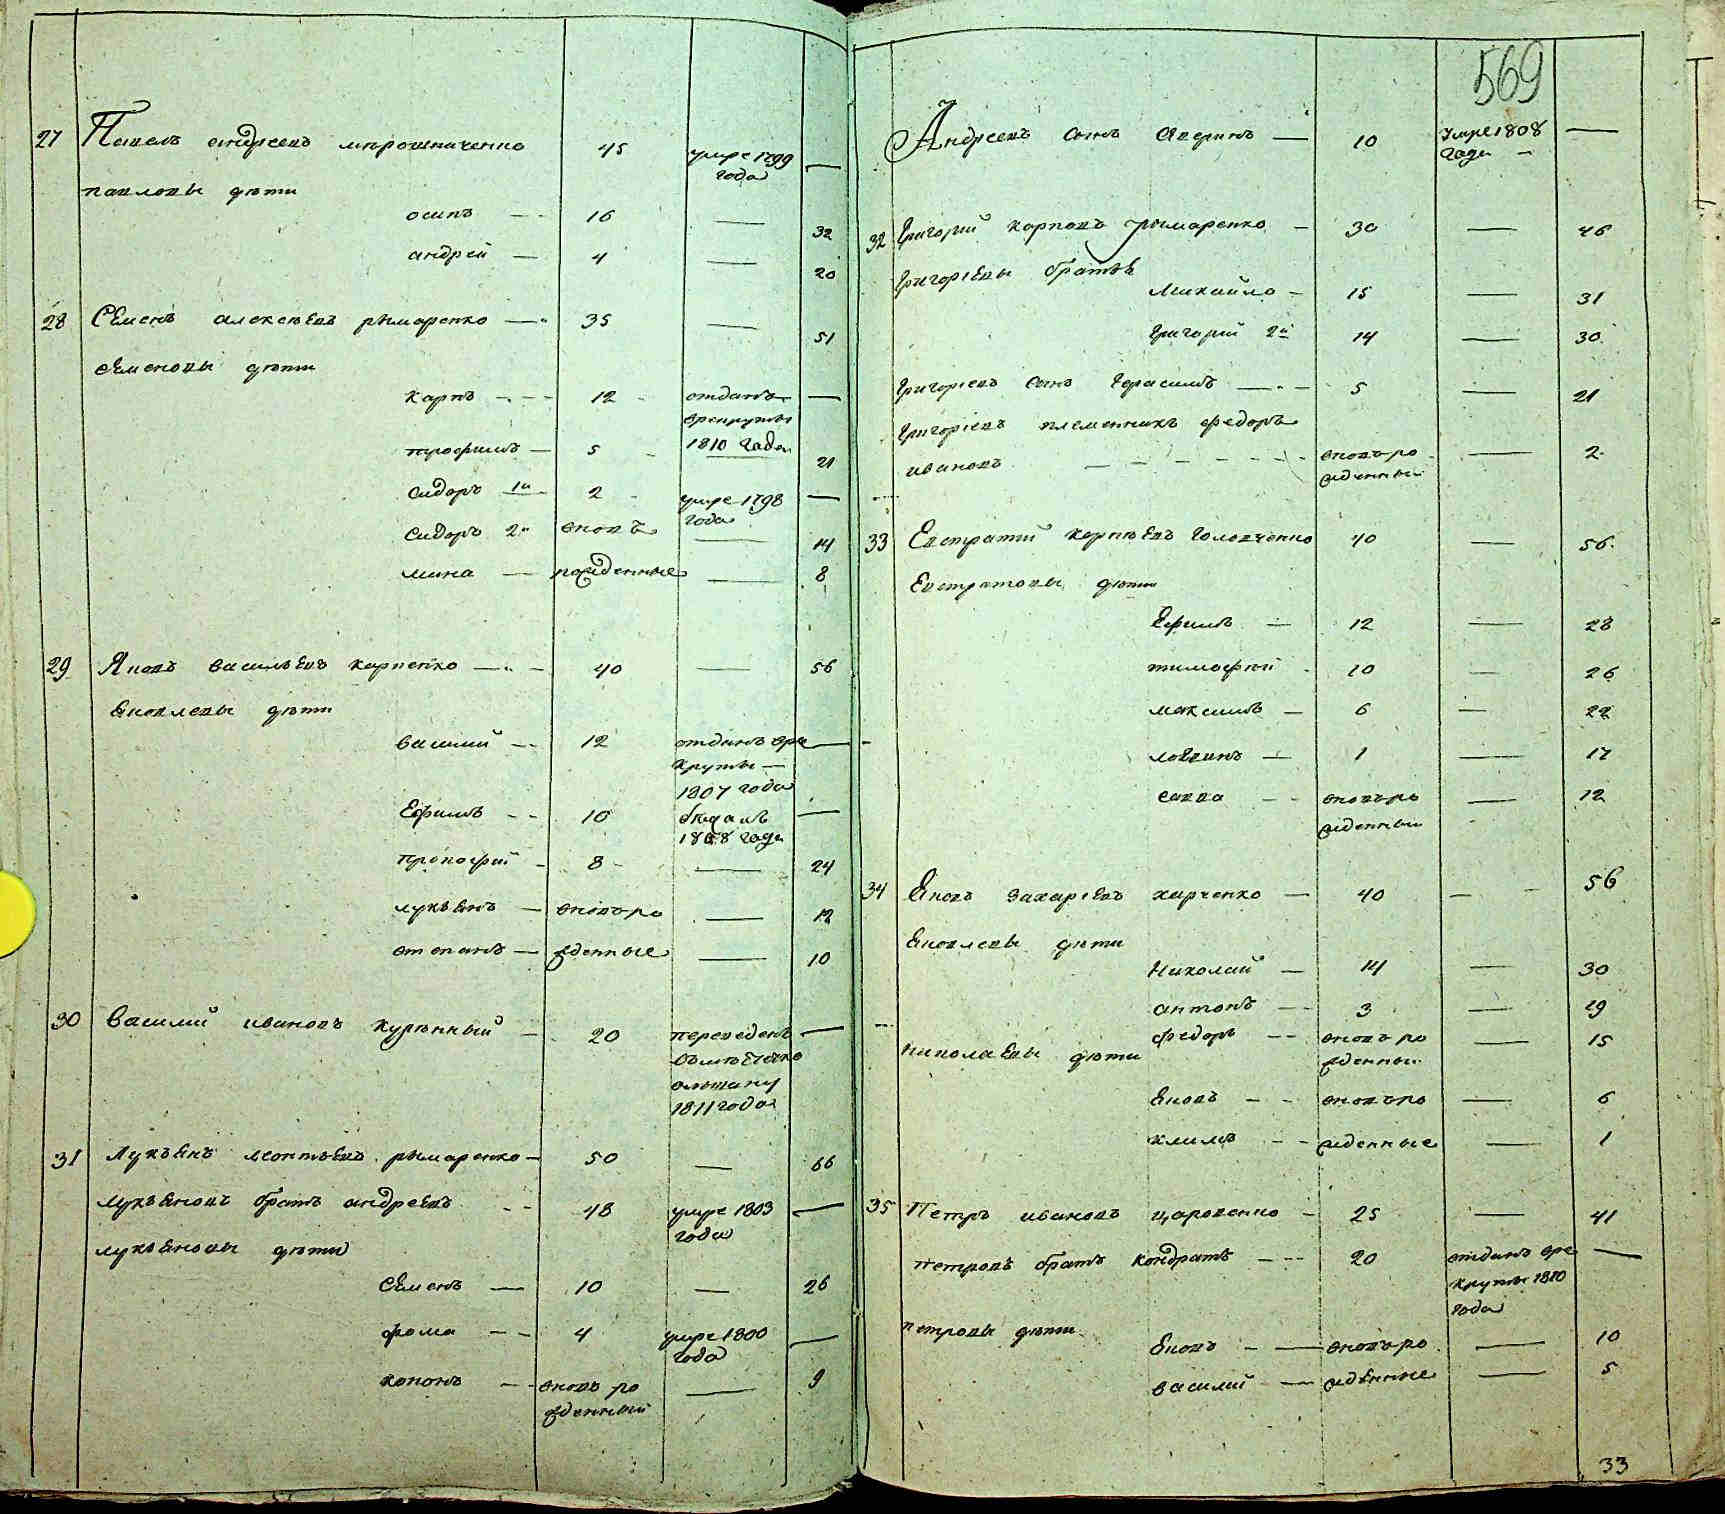 27 Павелъ андреевъ мирошниченко 45 умре 1799 —
года
павловы дѣти
осипъ — 16 — 32
андрей — 4 — 20
28 Семенъ алексѣевъ рымаренко — 35 — 51
семеновы дѣти
карпъ — 12 отданъ —
врекруты
1810 года
трофимъ — 5 — 21
сидоръ 1й 2 умре 1798 —
года
сидоръ 2й вновь — 14
мина — рожденные — 8
29 Яковъ васильевъ карпенко — 40 — 56
яковлевы дѣти
василий — 12 отданъ вре —
круты —
1807 года
Ефимъ — 10 отданъ —
1808 года
прокофий — 8 — 24
лукьянъ — вновь ро — 12
степанъ — жденные — 10
30 василий ивановъ курѣнный — 20 переведенъ —
въ местечко
ольшану
1811 года
31 Лукьянъ леонтьевъ рымаренко — 50 — 66
лукьяновъ братъ андреевъ — 48 умре 1803 —
года
лукьяновы дѣти
семенъ — 10 — 26
фома — 4 умре 1800 —
года
кононъ — вновь ро — 9
жденный
569
Андреевъ сынъ аверинъ — 10 умре 1808 —
года —
32 Григорий карповъ рымаренко — 30 — 46
григорiевы братья
Михайло — 15 — 31
григорий 2й 14 — 30
григорiевъ сынъ герасимъ — 5 — 21
григорiевъ племенникъ федоръ
ивановъ — вновь ро — 2
жденный
33 Евстратий корнѣевъ головченко 40 — 56
Евстратовы дѣти
Ефимъ — 12 — 28
тимофей 10 — 26
максимъ — 6 — 22
логвинъ — 1 — 17
савва — вновь ро — 12
жденный
34 Яковъ захарiевъ харченко — 40 — 56
яковлевы дѣти
Николай — 14 — 30
антонъ — 3 — 19
федоръ — вновь ро — 15
жденный
николаевы дѣти
яковъ — вновь ро — 6
климъ — жденные — 1
35 Петръ ивановъ царовенко — 25 — 41
петровъ братъ кондратъ — 20 отданъ вре —
круты 1810
года
петровы дѣти
яковъ — вновь ро — 10
василий — жденные — 5
33